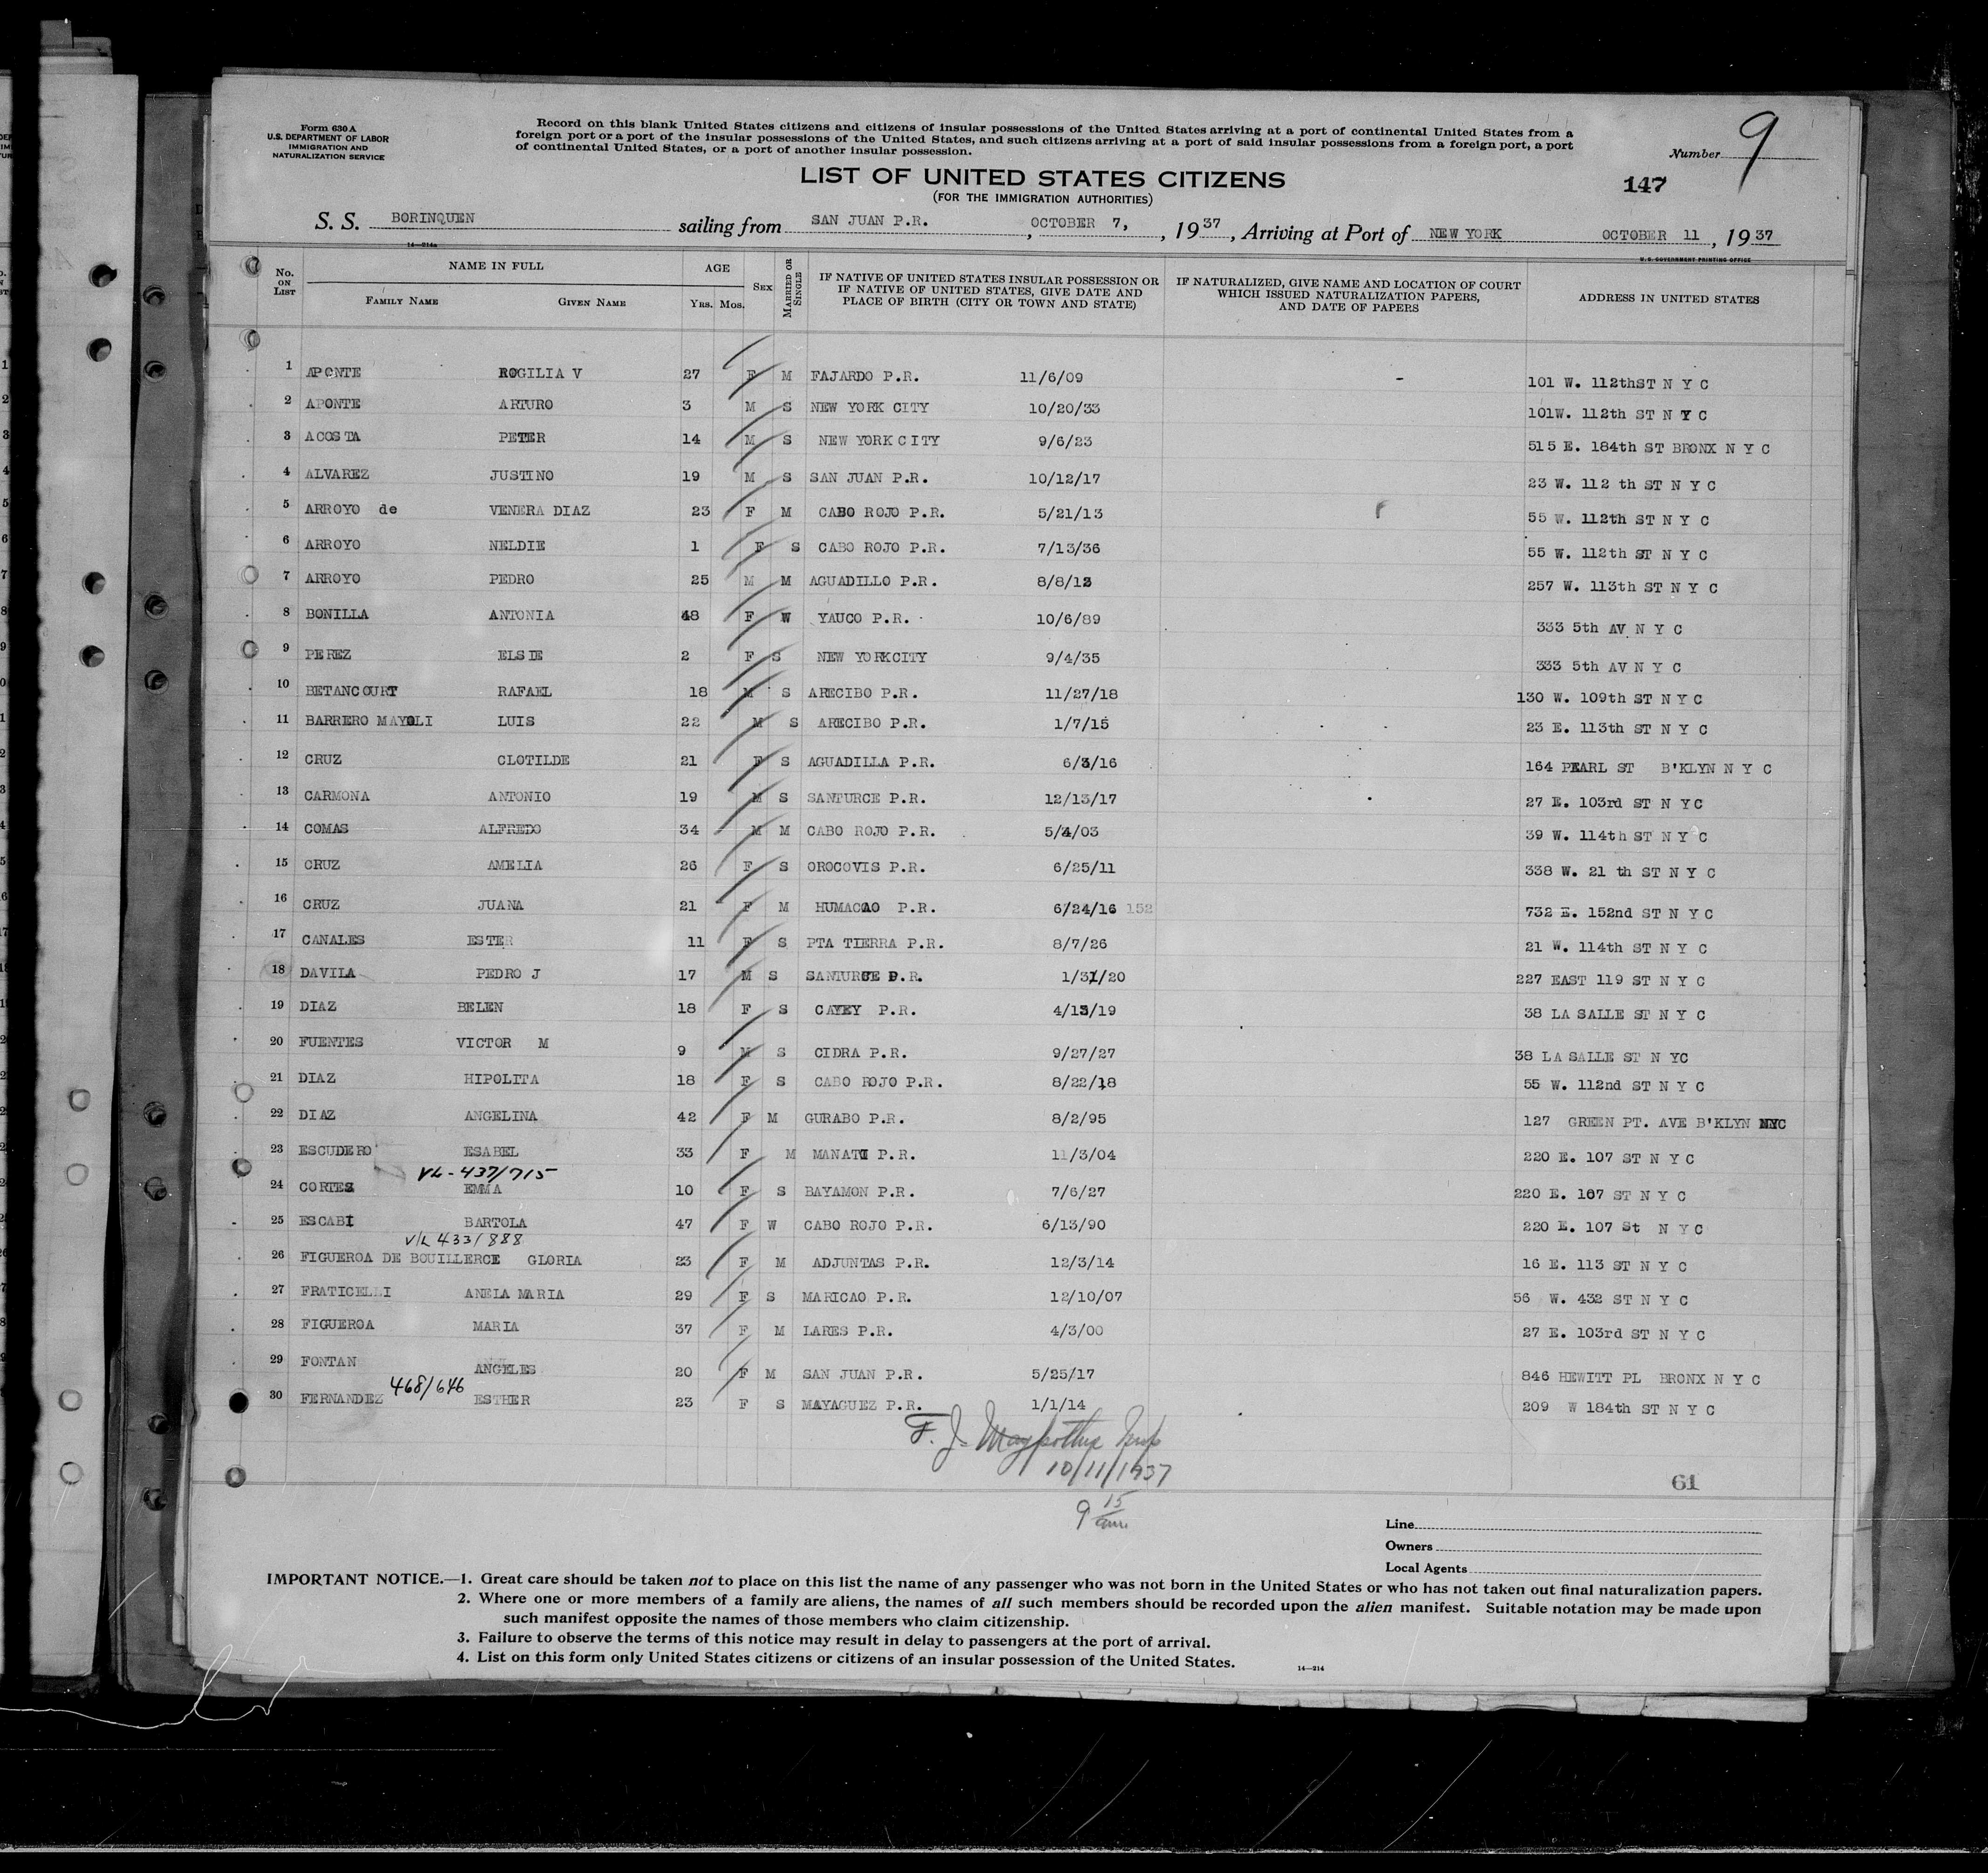 Form 630 A
U.S. DEPARTMENT OF LABOR
IMMIGRATION AND
NATURALIZATION SERVICE
Record on this blank United States citizens and citizens of insular possessions of the United States arriving at a port of continental United States from a
foreign port or a port of the insular possessions of the United States, and such citizens arriving at a port of said insular possessions from a foreign port, a port
of continental United States, or a port of another insular possession.
Number 9
147
LIST OF UNITED STATES CITIZENS
(FOR THE IMMIGRATION AUTHORITIES)
S. S. BORINQUEN sailing from SAN JUAN P.R. , OCTOBER 7, , 1937 , Arriving at Port of NEW YORK OCTOBER 11 , 1937
14—214a U.S. GOVERNMENT PRINTING OFFICE
No. ON LIST
NAME IN FULL
FAMILY NAME GIVEN NAME
AGE
YRS. MOS.
SEX
MARRIED OR SINGLE
IF NATIVE OF UNITED STATES INSULAR POSSESSION OR
IF NATIVE OF UNITED STATES, GIVE DATE AND
PLACE OF BIRTH (CITY OR TOWN AND STATE)
IF NATURALIZED, GIVE NAME AND LOCATION OF COURT
WHICH ISSUED NATURALIZATION PAPERS,
AND DATE OF PAPERS
ADDRESS IN UNITED STATES
1 APONTE ROGILIA V 27 F M FAJARDO P.R. 11/6/09 - 101 W. 112thST N Y C
2 APONTE ARTURO 3 M S NEW YORK CITY 10/20/33 101W. 112th ST N Y C
3 ACOSTA PETER 14 M S NEW YORK CITY 9/6/23 515 E. 184th ST BRONX N Y C
4 ALVAREZ JUSTINO 19 M S SAN JUAN P.R. 10/12/17 23 W. 112 th ST N Y C
5 ARROYO de VENERA DIAZ 23 F M CABO ROJO P.R. 5/21/13 55 W. 112th ST N Y C
6 ARROYO NELDIE 1 F S CABO ROJO P.R. 7/13/36 55 W. 112th ST N Y C
7 ARROYO PEDRO 25 M M AGUADILLO P.R. 8/8/12 257 W. 113th ST N Y C
8 BONILLA ANTONIA 48 F W YAUCO P.R. 10/6/89 333 5th AV N Y C
9 PEREZ ELSIE 2 F S NEW YORKCITY 9/4/35 333 5th AV N Y C
10 BETANCOURT RAFAEL 18 M S ARECIBO P.R. 11/27/18 130 W. 109th ST N Y C
11 BARRERO MAYOLI LUIS 22 M S ARECIBO P.R. 1/7/15 23 E. 113th ST N Y C
12 CRUZ CLOTILDE 21 F S AGUADILLA P.R. 6/3/16 164 PEARL ST B'KLYN N Y C
13 CARMONA ANTONIO 19 M S SANTURCE P.R. 12/13/17 27 E. 103rd ST N Y C
14 COMAS ALFREDO 34 M M CABO ROJO P.R. 5/4/03 39 W. 114th ST N Y C
15 CRUZ AMELIA 26 F S OROCOVIS P.R. 6/25/11 338 W. 21 th ST N Y C
16 CRUZ JUANA 21 F M HUMACAO P.R. 6/24/16 152 732 E. 152nd ST N Y C
17 CANALES ESTER 11 F S PTA TIERRA P.R. 8/7/26 21 W. 114th ST N Y C
18 DAVILA PEDRO J 17 M S SANTURCE P.R. 1/31/20 227 EAST 119 ST N Y C
19 DIAZ BELEN 18 F S CAYEY P.R. 4/15/19 38 LA SALLE ST N Y C
20 FUENTES VICTOR M 9 M S CIDRA P.R. 9/27/27 38 LA SALLE ST N YC
21 DIAZ HIPOLITA 18 F S CABO ROJO P.R. 8/22/18 55 W. 112nd ST N Y C
22 DIAZ ANGELINA 42 F M GURABO P.R. 8/2/95 127 GREEN PT. AVE B'KLYN NYC
23 ESCUDERO ESABEL 33 F M MANATI P.R. 11/3/04 220 E. 107 ST N Y C
VL-437/715
24 CORTES EMMA 10 F S BAYAMON P.R. 7/6/27 220 E. 107 ST N Y C
25 ESCABI BARTOLA 47 F W CABO ROJO P.R. 6/13/90 220 E. 107 St N Y C
V/L 433/888
26 FIGUEROA DE BOUILLERCE GLORIA 23 F M ADJUNTAS P.R. 12/3/14 16 E. 113 ST N Y C
27 FRATICELLI ANELA MARIA 29 F S MARICAO P.R. 12/10/07 56 W. 432 ST N Y C
28 FIGUEROA MARIA 37 F M LARES P.R. 4/3/00 27 E. 103rd ST N Y C
29 FONTAN ANGELES 20 F M SAN JUAN P.R. 5/25/17 846 HEWITT PL BRONX N Y C
468/646
30 FERNANDEZ ESTHER 23 F S MAYAGUEZ P.R. 1/1/14 209 W 184th ST N Y C
F. J.
10/11/1937
9 15 am.
61
Line
Owners
Local Agents
IMPORTANT NOTICE.—1. Great care should be taken not to place on this list the name of any passenger who was not born in the United States or who has not taken out final naturalization papers.
2. Where one or more members of a family are aliens, the names of all such members should be recorded upon the alien manifest. Suitable notation may be made upon
such manifest opposite the names of those members who claim citizenship.
3. Failure to observe the terms of this notice may result in delay to passengers at the port of arrival.
4. List on this form only United States citizens or citizens of an insular possession of the United States.
14—214